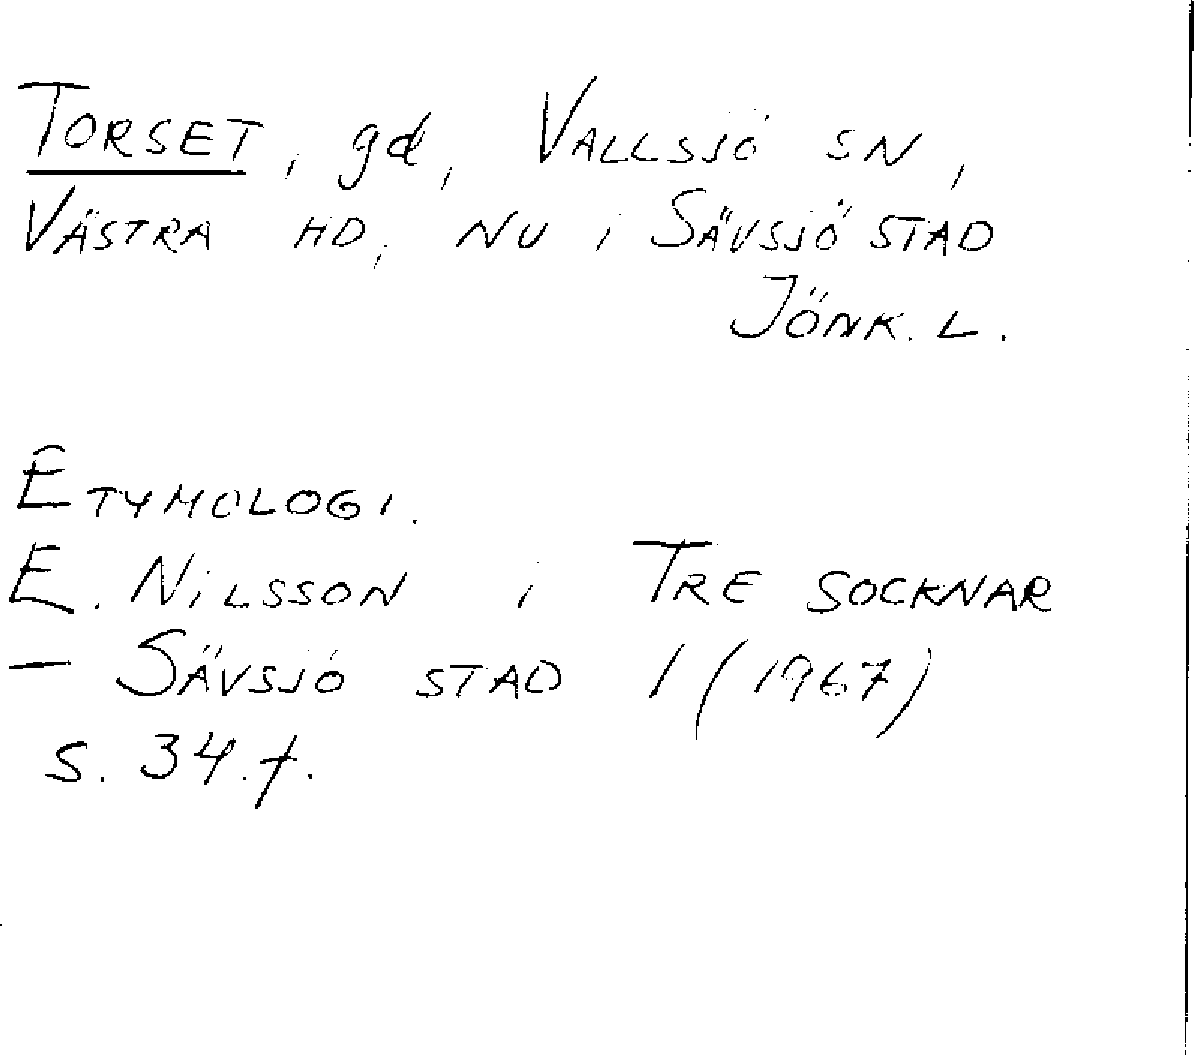 TORSET, gd, VALLSJÖ SN,
VÄSTRA HD, NU i SÄVSJÖ STAD
JÖNK. L.
ETYMOLOGI.
E. NILSSON i TRE SOCKNAR
– SÄVSJÖ STAD 1 (1967)
s. 34.f.